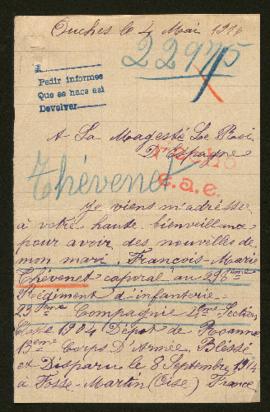 Ouches le 4 Mai 1916
22975
Pedir informes
Que se hace así
Devolver
A Sa Magesté Le Roi
D'Espagne
Thévenet
s.a.e.
Je viens m'adresser
à votre haute bienveillance
pour avoir des nouvelles de
mon mari, François-Marie
Thévenet caporal au 298ème
Régiment d'infanterie
23ème Compagnie Section
Classe 1904 (Dépôt de Roanne
13ème Corps D'Armée, Blessé
et Disparu le 8 Septembre 1914
à Fosse-Martin (Oise) France